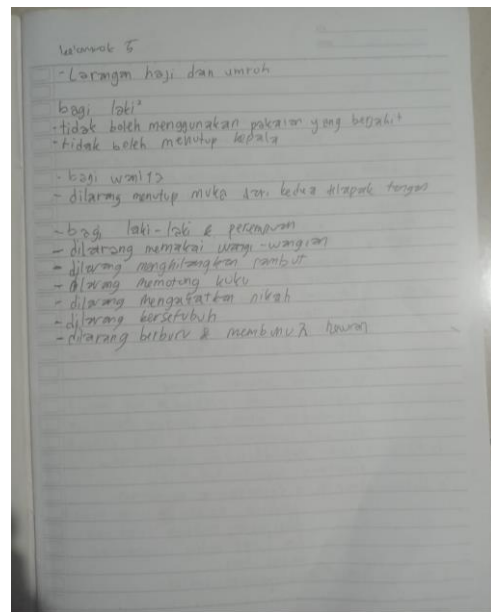 kelompok 5
- Larangan haji dan umroh
bagi laki²
- tidak boleh menggunakan pakaian yang berjahit
- tidak boleh menutup kepala
- bagi wanita
- dilarang menutup muka dan kedua telapak tangan
- bagi laki-laki & perempuan
- dilarang memakai wangi-wangian
- dilarang menghilangkan rambut
- dilarang memotong kuku
- dilarang mengakatkan nikah
- dilarang bersetubuh
- dilarang berburu & membunuh hewan